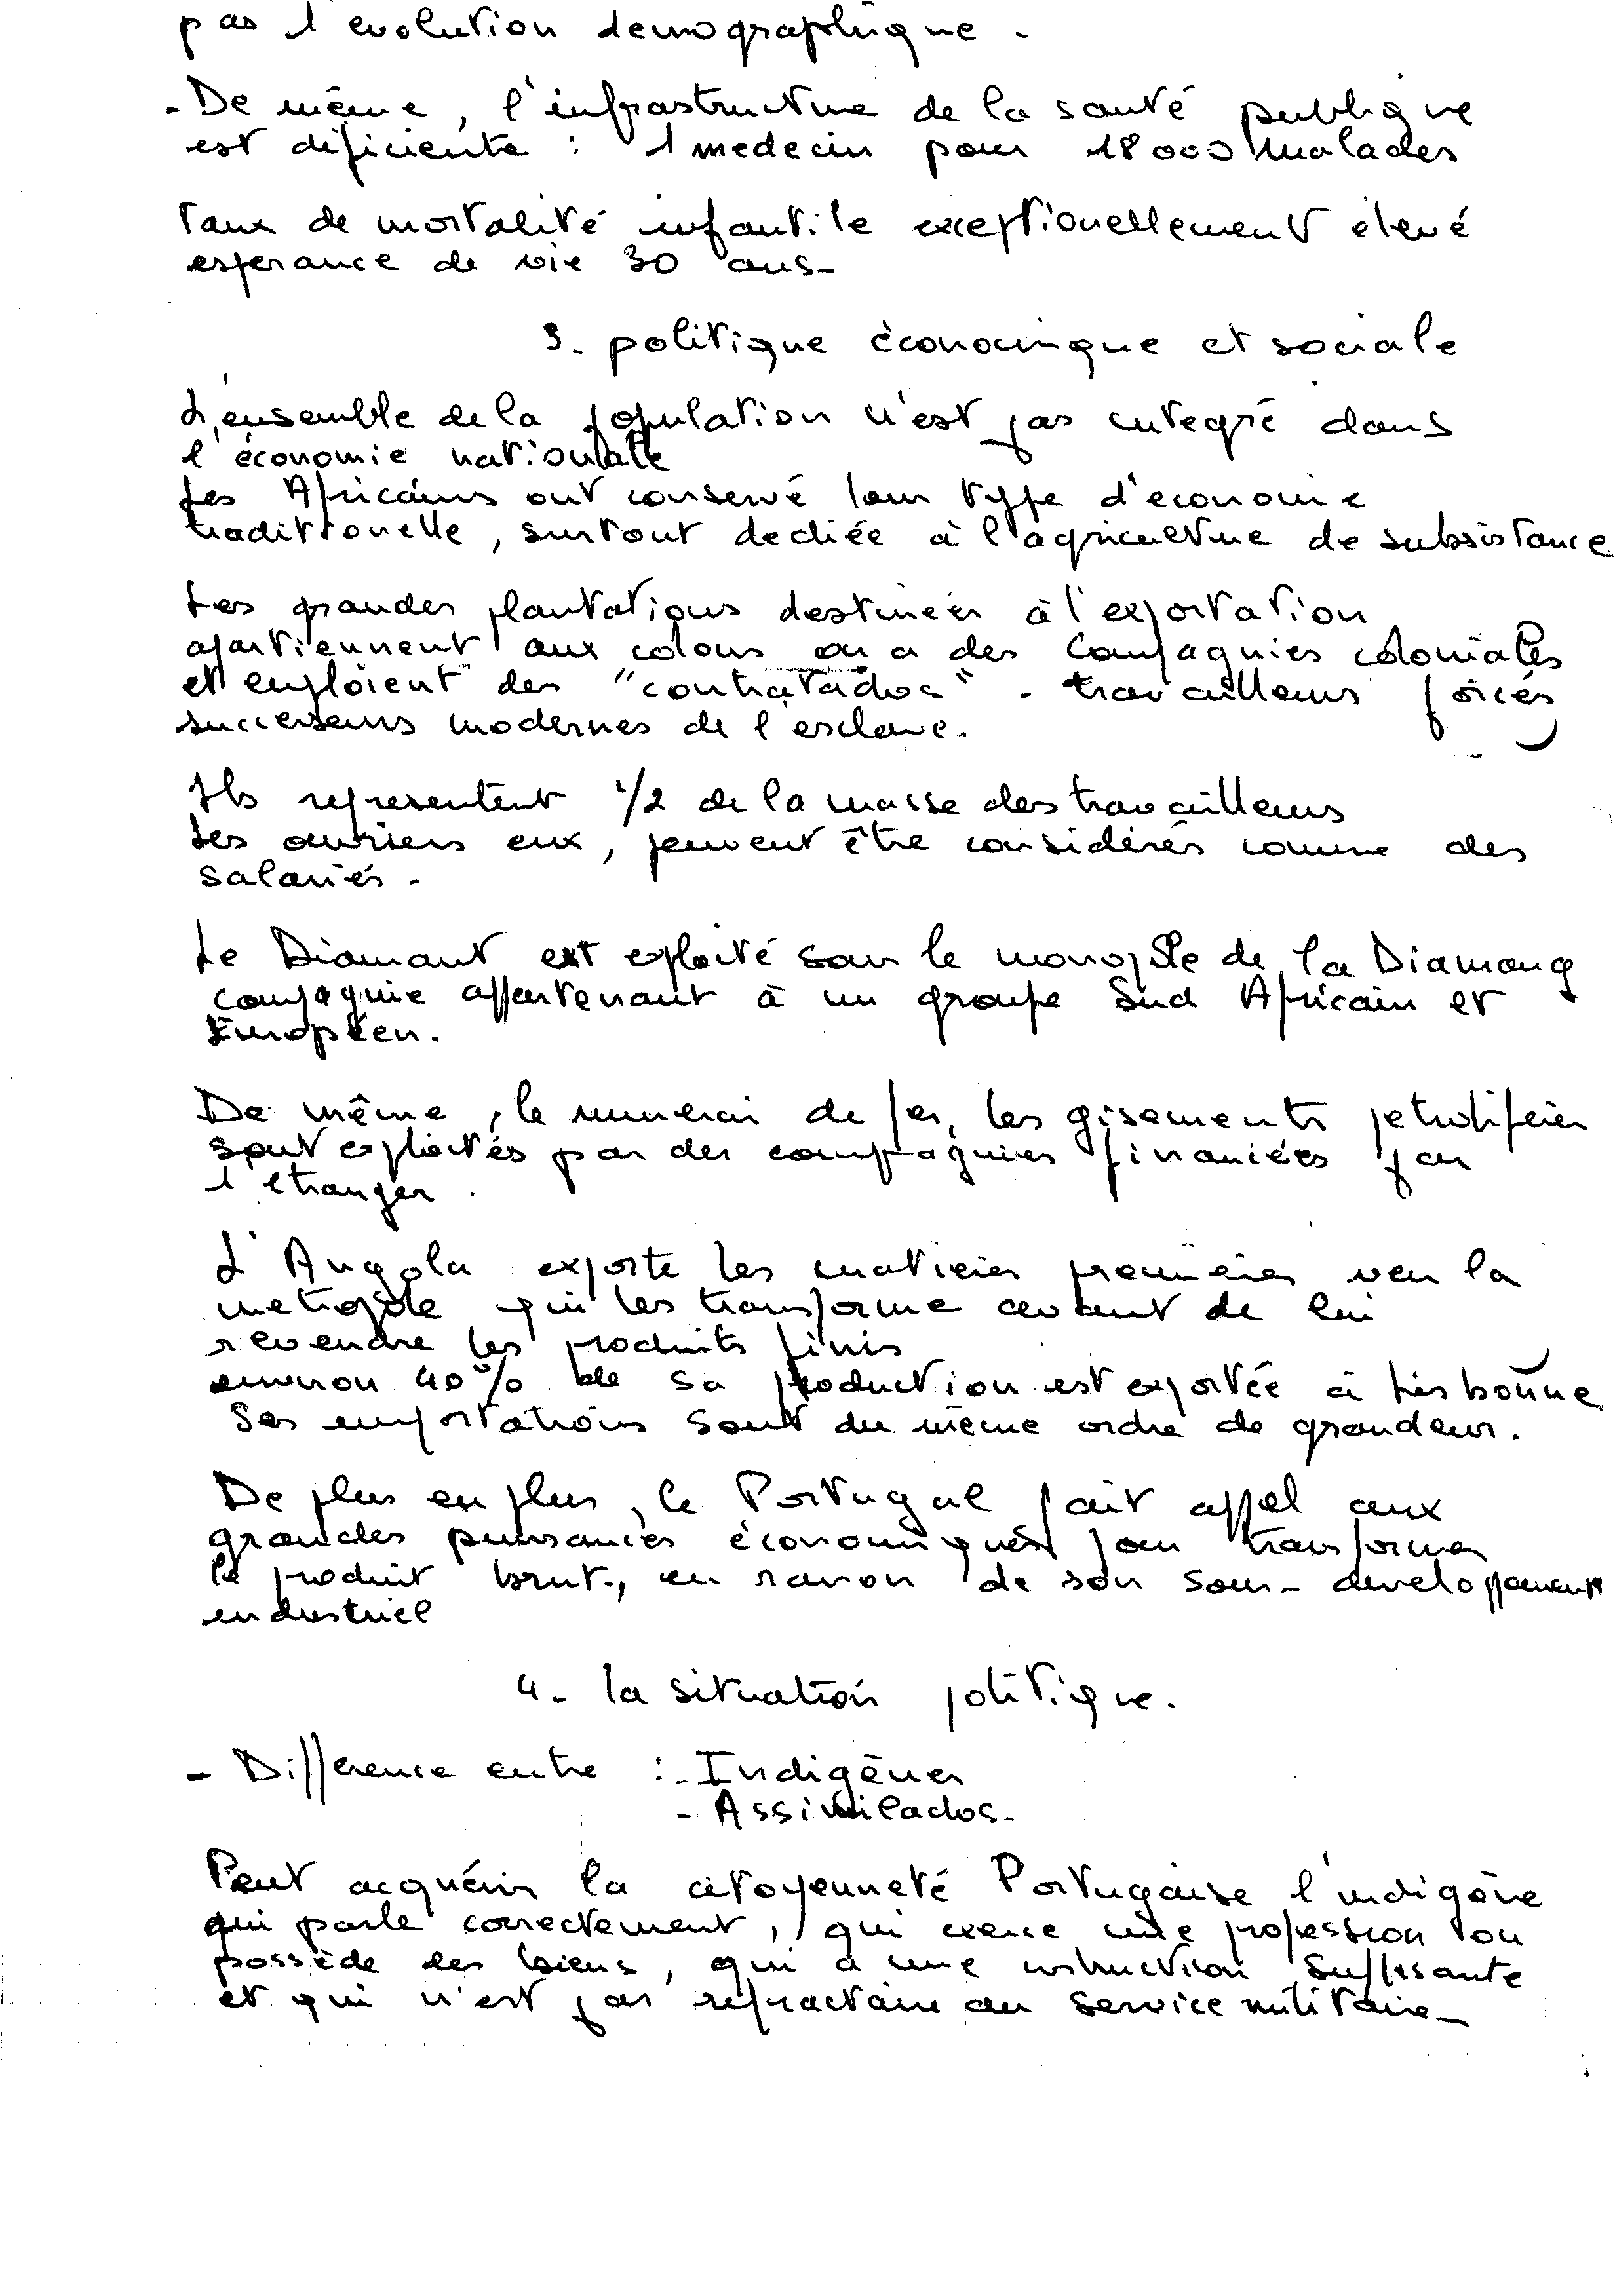 pas l'evolution demographique -
- De même, l'infrastructure de la santé publique
est déficiente : 1 medecin pour 18000 malades
Taux de mortalité infantile exceptionellement élevé
esperance de vie 30 ans -
3. politique économique et sociale
L'ensemble de la population n'est pas integré dans
l'économie nationale
Les Africains ont conservé leur type d'economie
traditionelle, surtout dediée à l'agriculture de subsistance
Les grandes plantations destinées à l'exportation
apartiennent aux colons ou a des Compagnies coloniales
et emploient des "contratados" - travailleurs forcés
successeurs modernes de l'esclave.
Ils representent 1/2 de la masse des travailleurs
Les ouvriers eux, peuvent être considérés comme des
salariés -
Le Diamant est exploité sous le monopole de la Diamang
compagnie appartenant à un groupe Sud Africain et
Européen.
De même, le minerai de fer, les gisements petrolifères
sont exploités par des compagnies financiées par
l'etranger.
L'Angola exporte les matières premières vers la
metropole qui les transforme avant de lui
revendre les produits finis
environ 40% de sa production est exportée à Lisbonne
Ses importations sont du même ordre de grandeur.
De plus en plus, le Portugal fait appel aux
grandes puissances économiques pour transformer
le produit brut, en raison de son sous-developpement
industriel
4- la situation politique.
- Difference entre : - Indigènes
- Assimilados -
Peut acquérir la citoyenneté Portugaise l'indigène
qui parle correctement, qui exerce une profession ou
possède des biens, qui a une instruction suffisante
et qui n'est pas réfractaire au service militaire -